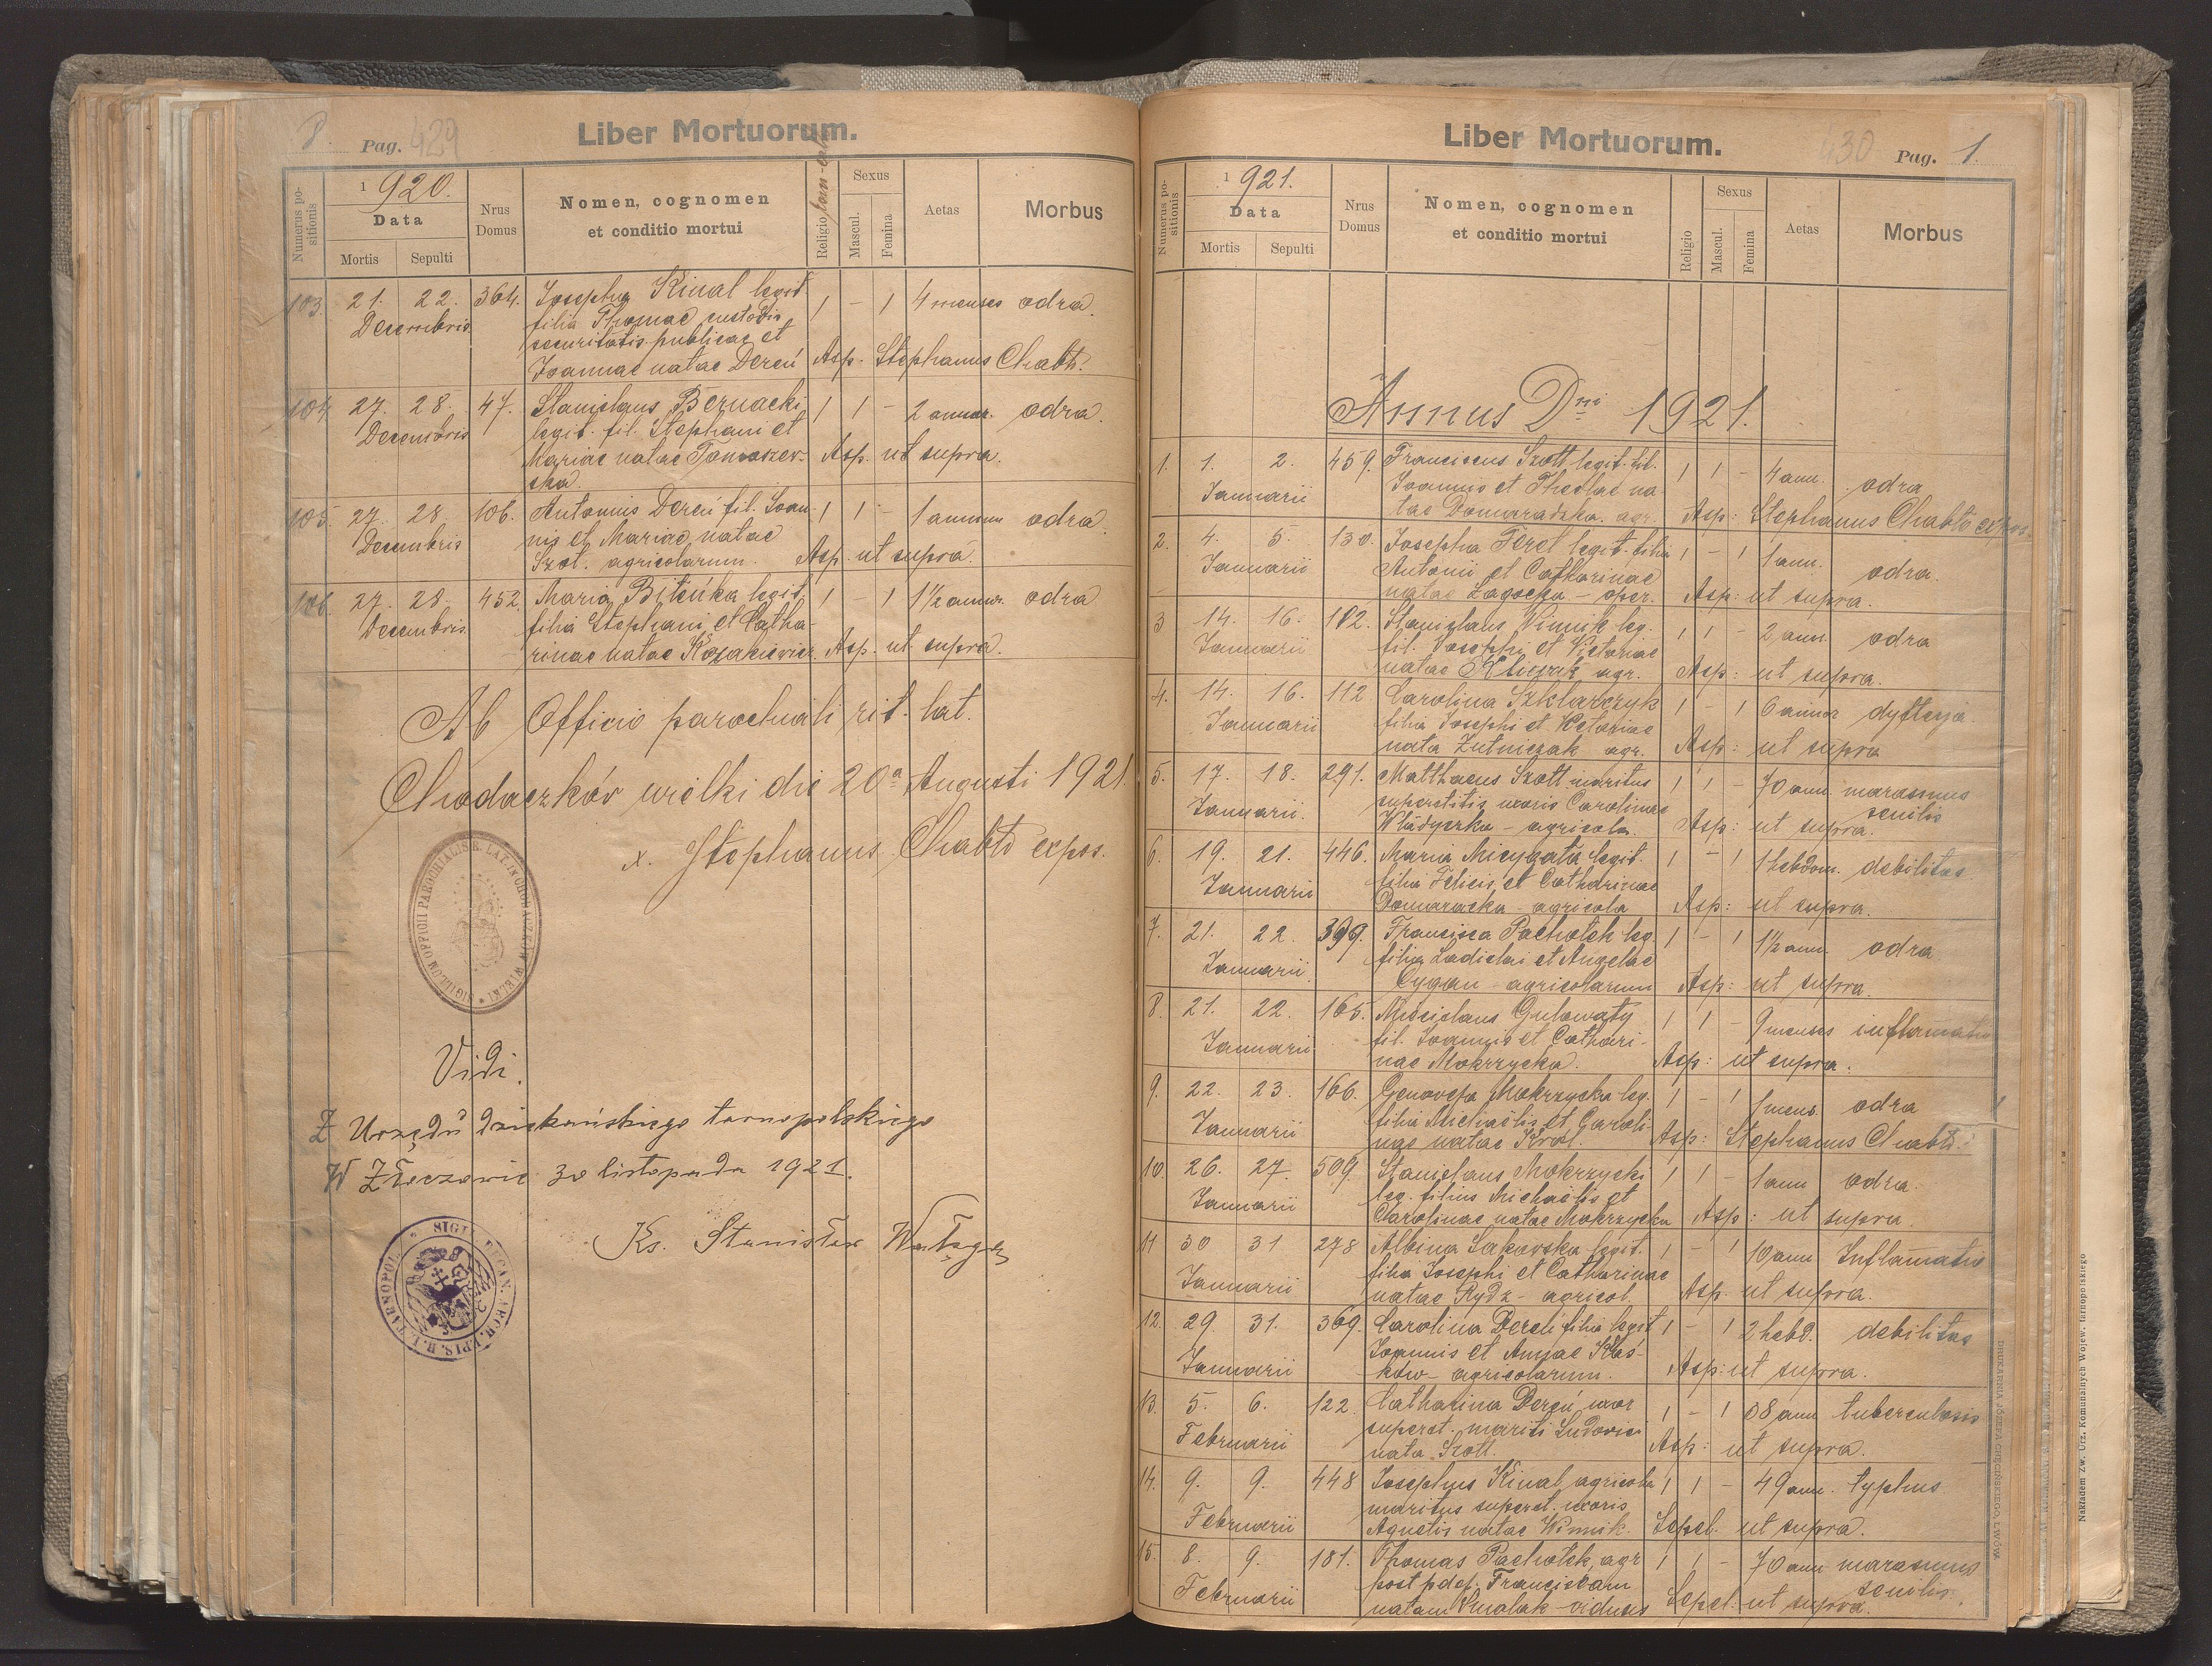 8. Pag. 429
Liber Mortuorum.
Numerus positionis
1920.
Data
Mortis
Sepulti
Nrus Domus
Nomen, cognomen
et conditio mortui
Religio
Sexus
Mascul.
Femina
Aetas
Morbus
103. 21. 22. 364. Josepha Kinal legit. 1 – 1 4 menses odra.
Decembris filia Thomae custodis
securitatis publicae et
Joannae natae Dereń Asp. Stephanus Chabło.
104. 27. 28. 47. Stanislaus Bernacki 1 1 – 2 annor. odra.
Decembris legit. fil. Stephani et
Mariae natae Tomaszew- Asp. ut supra.
ska.
105. 27. 28. 106. Antonius Dereń fil. Joan- 1 1 – 1 annum odra.
Decembris nis et Mariae natae
Szot. agricolarum. Asp. ut supra.
106. 27. 28. 452. Maria Biteńka legit. 1 – 1 1½ annor. odra
Decembris filia Stephani et Catha-
rinae natae Kozakiewicz. Asp. ut supra.
Ab Officio parochiali rit. lat.
Chodaczków wielki die 20a Augusti 1921.
x. Stephanus Chabło expos.
SIGILLUM OFFICII PAROCHIALIS R. LAT. IN CHODACZKÓW WIELKI
Vidi.
Z Urzędu dziekańskiego tarnopolskiego
W 30 listopada 1921.
Ks. Stanisław
SIGIL. DECAN. ARCH. EPIS. R. L. TARNOPOL.
Liber Mortuorum.
430 Pag. 1.
Numerus positionis
1921.
Data
Mortis
Sepulti
Nrus Domus
Nomen, cognomen
et conditio mortui
Religio
Sexus
Mascul.
Femina
Aetas
Morbus
Annus Dni 1921.
1. 1. 2. 459. Franciscus Szott legit. fil. 1 1 – 4 ann. odra
Januarii Joannis et Theclae na
tae Domaradzka. agr. Asp: Stephanus Chabło expos.
2. 4. 5. 130. Josepha Feret legit. filia 1 – 1 1 ann. odra.
Januarii Antonii et Catharinae
natae Zagocka – oper. Asp: ut supra.
3 14. 16. 102. Stanislaus Winnik leg. 1 1 – 2 ann. odra
Januarii fil. Josephi et Victoriae
natae agr. Asp: ut supra.
4. 14. 16. 112 Carolina Szklarczyk 1 – 1 6 annor dyfterja
Januarii filia Josephi et Victoriae
nata Zutniczak agr. Asp: ut supra
5. 17. 18. 291. Matthaeus Szott maritus 1 1 – 70 ann. marasmus
Januarii. superstitis uxoris Carolinae senilis
Władyczka – agricola. Asp: ut supra.
6. 19. 21. 446. Maria legit. 1 – 1 1 hebdom. debilitas
Januarii filia Felicis et Catharinae
Domaracka – agricola Asp: ut supra.
7. 21. 22. 399. Francisca Pachołek leg. 1 – 1 1½ ann. odra
Januarii filia Ladislai et Angelae
Cygan – agricolarum Asp: ut supra.
8. 21. 22. 165. Miecislaus Gulowaty 1 1 – 9 menses inflamatio
Januarii fil. Joannis et Cathari-
nae Mokrzycka. Asp: ut supra.
9. 22. 23. 166. Genovefa Mokrzycka leg. 1 – 1 1 mens. odra
Januarii filia Michaëlis et Caroli-
nae natae Król. Asp: Stephanus Chabło.
10. 26. 27. 509. Stanislaus Mokrzycki 1 1 – 1 ann odra.
Januarii leg. filius Michaëlis et
Carolinae natae Mokrzycka Asp: ut supra.
11 30 31 278 Albina Sakowska legit. 1 – 1 10 ann Inflamatio
Januarii filia Josephi et Catharinae
natae Rydz – agricol. Asp. ut supra.
12. 29. 31. 369. Carolina Dereń filia legit 1 – 1 2 hebd. debilitas
Januarii Joannis et Annae Kłos-
ków – agricolarum. Asp: ut supra.
13. 5. 6. 122 Catharina Dereń uxor 1 – 1 68 ann tuberculosis
Februarii superst. mariti Ludovici
nata Szott. Asp: ut supra.
14. 9. 9. 448 Josephus Kinal agricola 1 1 – 49 ann. typhus
Februarii maritus superst. uxoris
Agnetis natae Winnik. Sepel. ut supra.
15. 8. 9. 181. Thomas Pachołek, agr 1 1 – 70 ann marasmus
Februarii post p. def. Franciscam senilis.
natam Smolak – viduus Sepel: ut supra.
Nakładem Zw. Urz. Komunalnych Wojew. tarnopolskiego